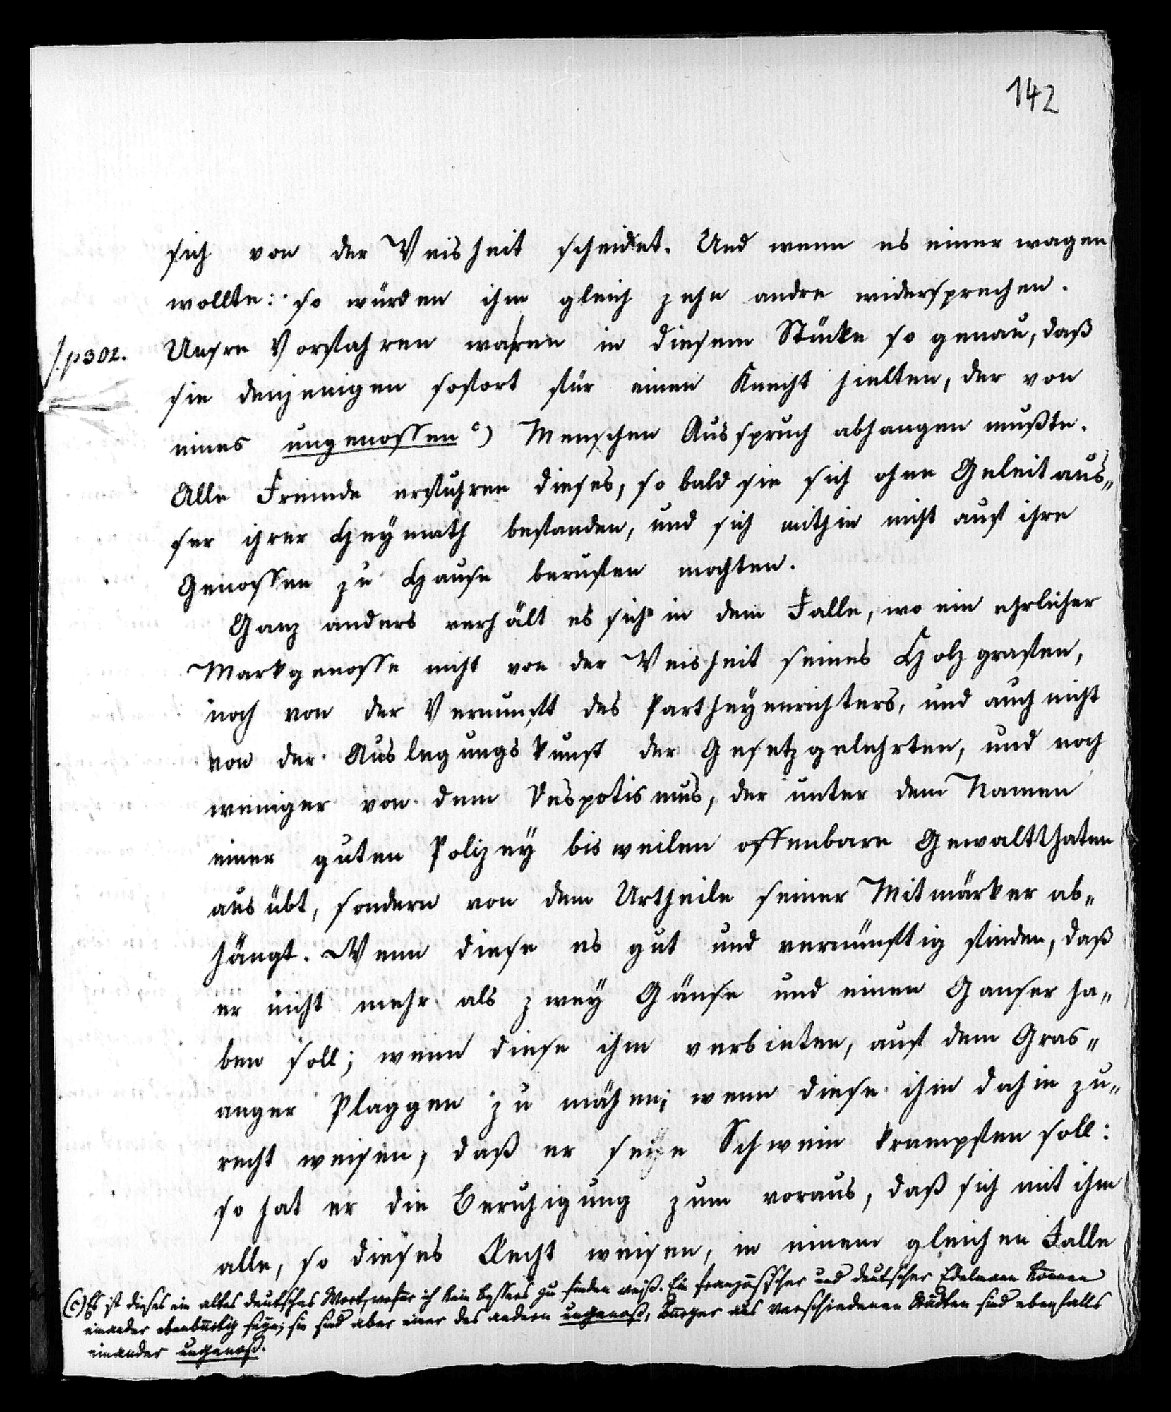 142
sich von der Weisheit scheidet. Und wenn es einer wagen
wollte: so würden ihm gleich zehn andre widersprechen.
/.p302.
Unsre Vorfahren waren in diesem Stücke so genau, daß
sie denjenigen sofort für einen Knecht hielten, der von
eines ungenossen c) Menschen Ausspruch abhangen mußte.
Alle Fremde erfuhren dieses, so bald sie sich ohne Geleit aus„
ser ihrer Heymath befanden, und sich mithin nicht auf ihre
Genossen zu Hause berufen mochten.
Ganz anders verhält es sich in dem Falle, wo ein ehrlicher
Markgenosse nicht von der Weisheit seines Holzgrafen,
noch von der Vernunft des Partheyenrichters, und auch nicht
von der Auslegungskunst der Gesetzgelehrten, und noch
weniger von dem Despotismus, der unter dem Namen
einer guten Polizey bisweilen offenbare Gewaltthaten
ausübt, sondern von dem Urtheile seiner Mitmärker ab„
hängt. Wenn diese es gut und vernünftig finden, daß
er nicht mehr als zwey Gänse und einen Ganser ha„
ben soll; wenn diese ihm verbieten, auf dem Gras„
anger Plaggen zu mähen; wenn diese ihm dahin zu„
recht weisen, daß er seine Schwein krampfen soll:
so hat er die Beruhigung zum voraus, daß sich mit ihm
alle, so dieses Recht weisen, in einem gleichen Falle
(c) Es ist dieses ein altes deutsches Wort, wofür ich kein besseres zu finden weiß. Ein französischer und deutscher Edelmann können
einander ebenbürtig seyn; sie sind aber einer des andern ungenoß, Bürger aus verschiedenen Städten sind ebenfalls
einander ungenoß.